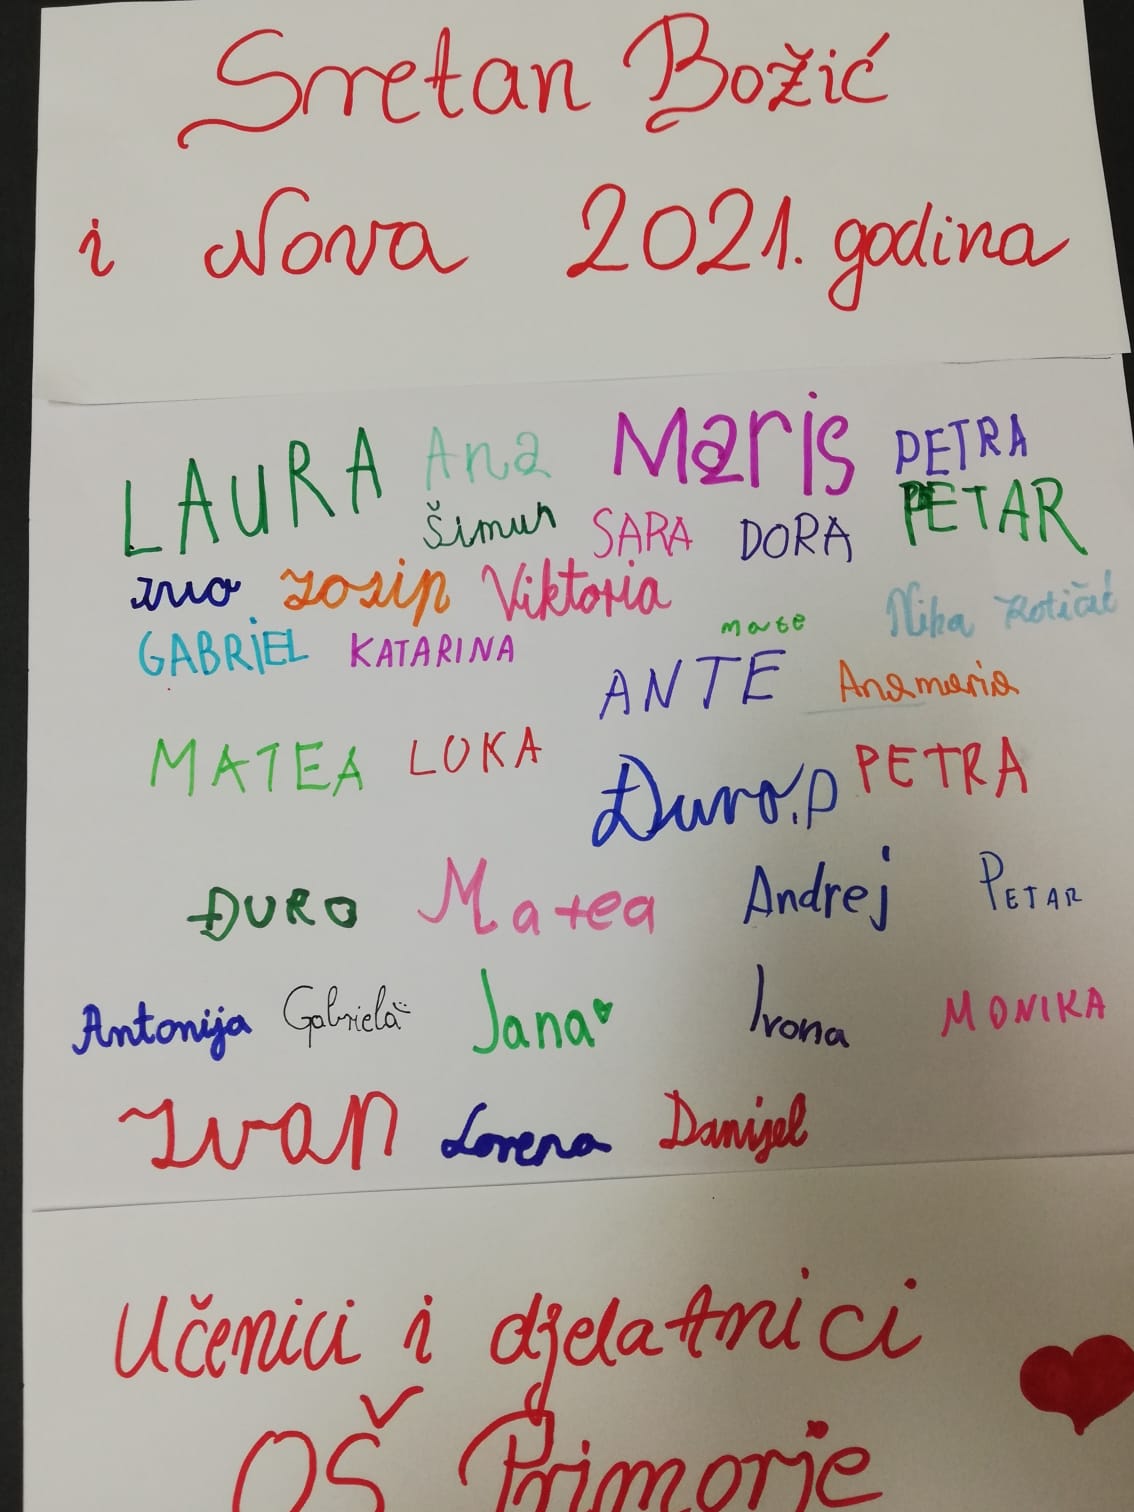 Sretan Božić
i Nova 2021. godina
LAURA Ana Maris PETRA
Šimun SARA DORA PETAR
Ivo Josip Viktoria
GABRIEL KATARINA mate Nika
ANTE Anamaria
MATEA LUKA Đuro.P PETRA
ĐURO Matea Andrej PETAR
Antonija Gabriela Jana Ivona MONIKA
Ivan Lorena Danijel
Učenici i djelatnici
OŠ Primorje